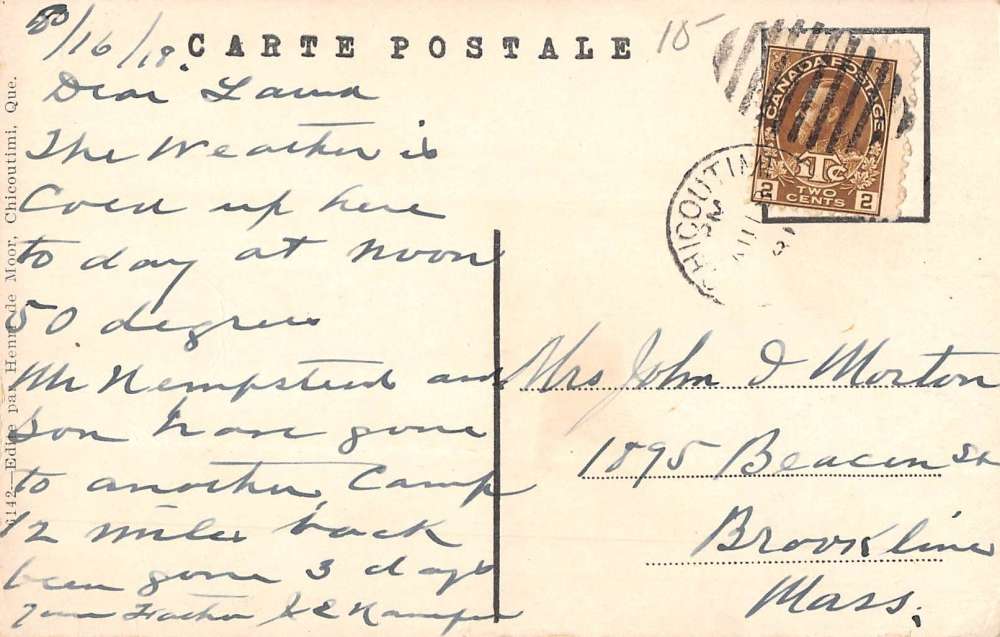 /16/18.
CARTE POSTALE
15
Dear Laura
The Weather is
Coed up here
to day at noon
50 degrees
Mr Hempstead and
Son have gone
to another Camp
12 miles back
been gone 3 days
Your Father J E
Mrs John D Morton
1895 Beacon St
Brookline
Mass.
CANADA POSTAGE
1Tc
2 TWO CENTS 2
CHICOUTIMI
PM
6142.—Edité par Henri de Moor, Chicoutimi, Que.